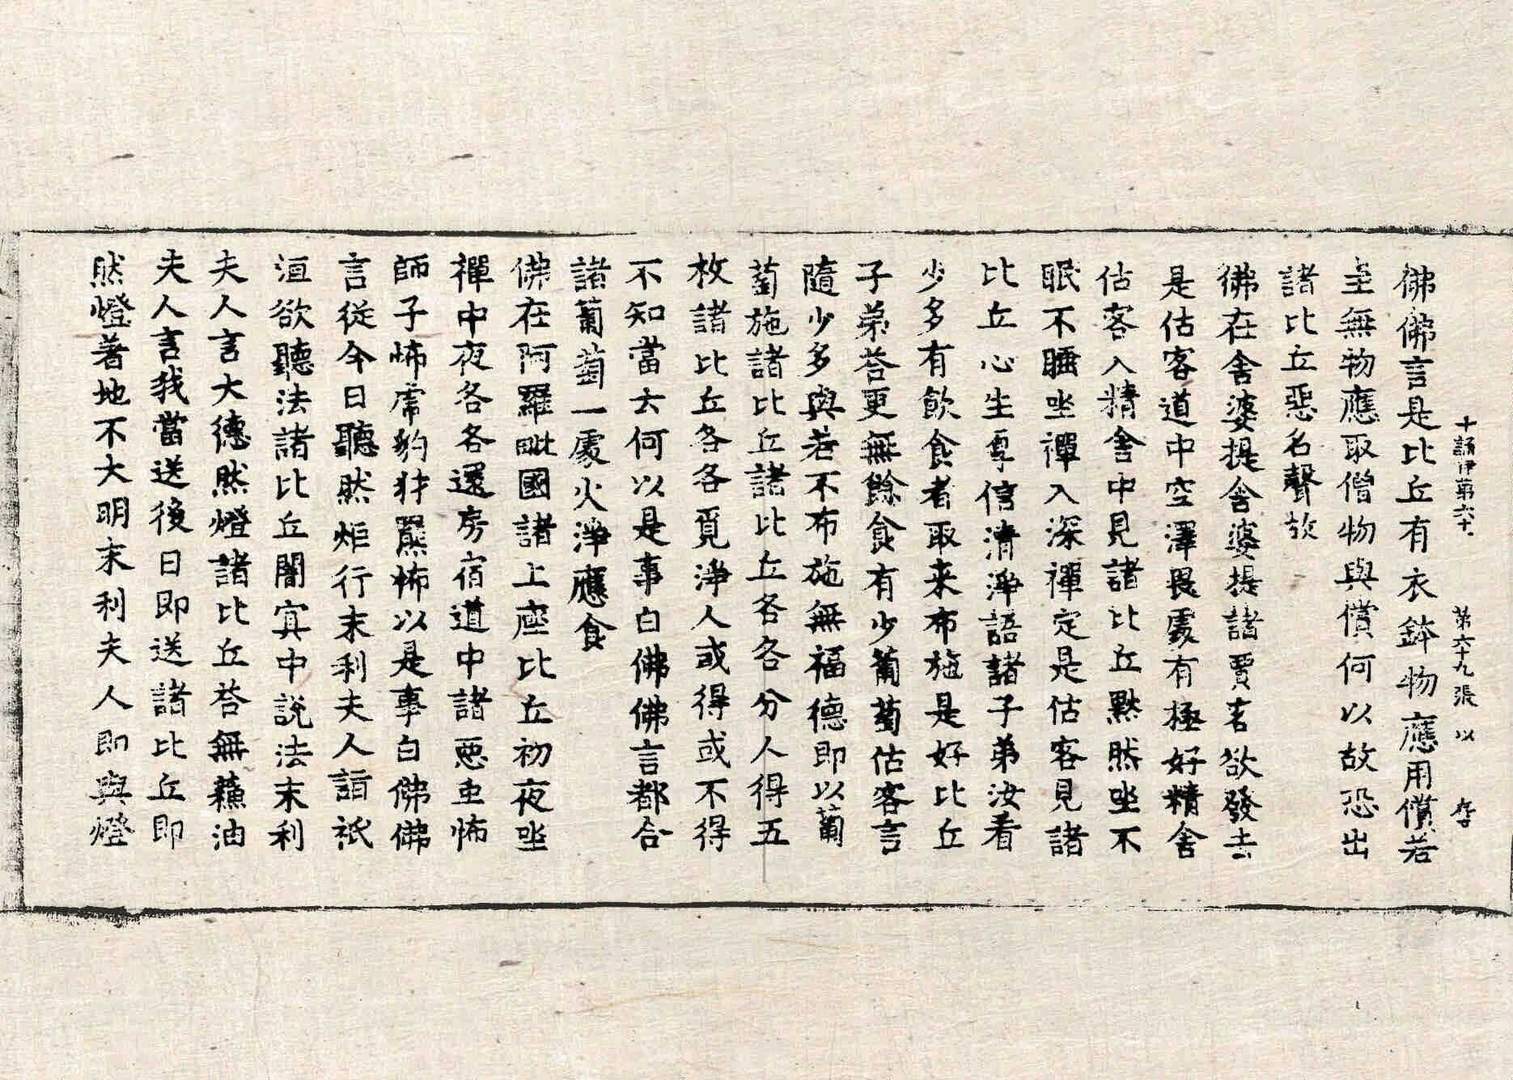 十誦律第六十 第六十九張 以 存
佛佛言是比丘有衣鉢物應用償若
主無物應取僧物與償何以故恐出
諸比丘惡名聲故
佛在舍婆提舍婆提諸賈客欲發去
是估客道中空澤畏處有極好精舍
估客入精舍中見諸比丘黙然坐不
眠不睡坐禪入深禪定是估客見諸
比丘心生尊信清淨語諸子弟汝看
少多有飲食者取来布施是好比丘
子弟荅更無餘食有少葡萄估客言
隨少多與若不布施無福德即以葡
萄施諸比丘諸比丘各各分人得五
枚諸比丘各各覓淨人或得或不得
不知當云何以是事白佛佛言都合
諸葡萄一處火淨應食
佛在阿羅毗國諸上座比丘初夜坐
禪中夜各各還房宿道中諸惡虫怖
師子怖虎豹犲羆怖以是事白佛佛
言從今日聽然炬行末利夫人詣祇
洹欲聽法諸比丘闇冥中說法末利
夫人言大德然燈諸比丘荅無蘓油
夫人言我當送後日即送諸比丘即
然燈著地不大明末利夫人即與燈